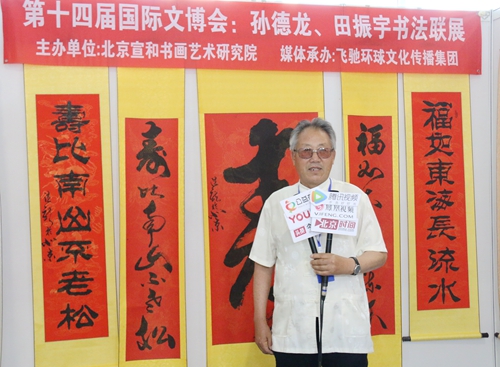 第十四届国际文博会：孙德龙、田振宇书法联展
主办单位:北京宣和书画艺术研究院 媒体承办:飞驰环球文化传播集团
壽比南山不老松
寿比南山不老松
福如
福如東海長流水
腾讯视频
凤凰视频
V.IFENG.COM
YOU
北京时间